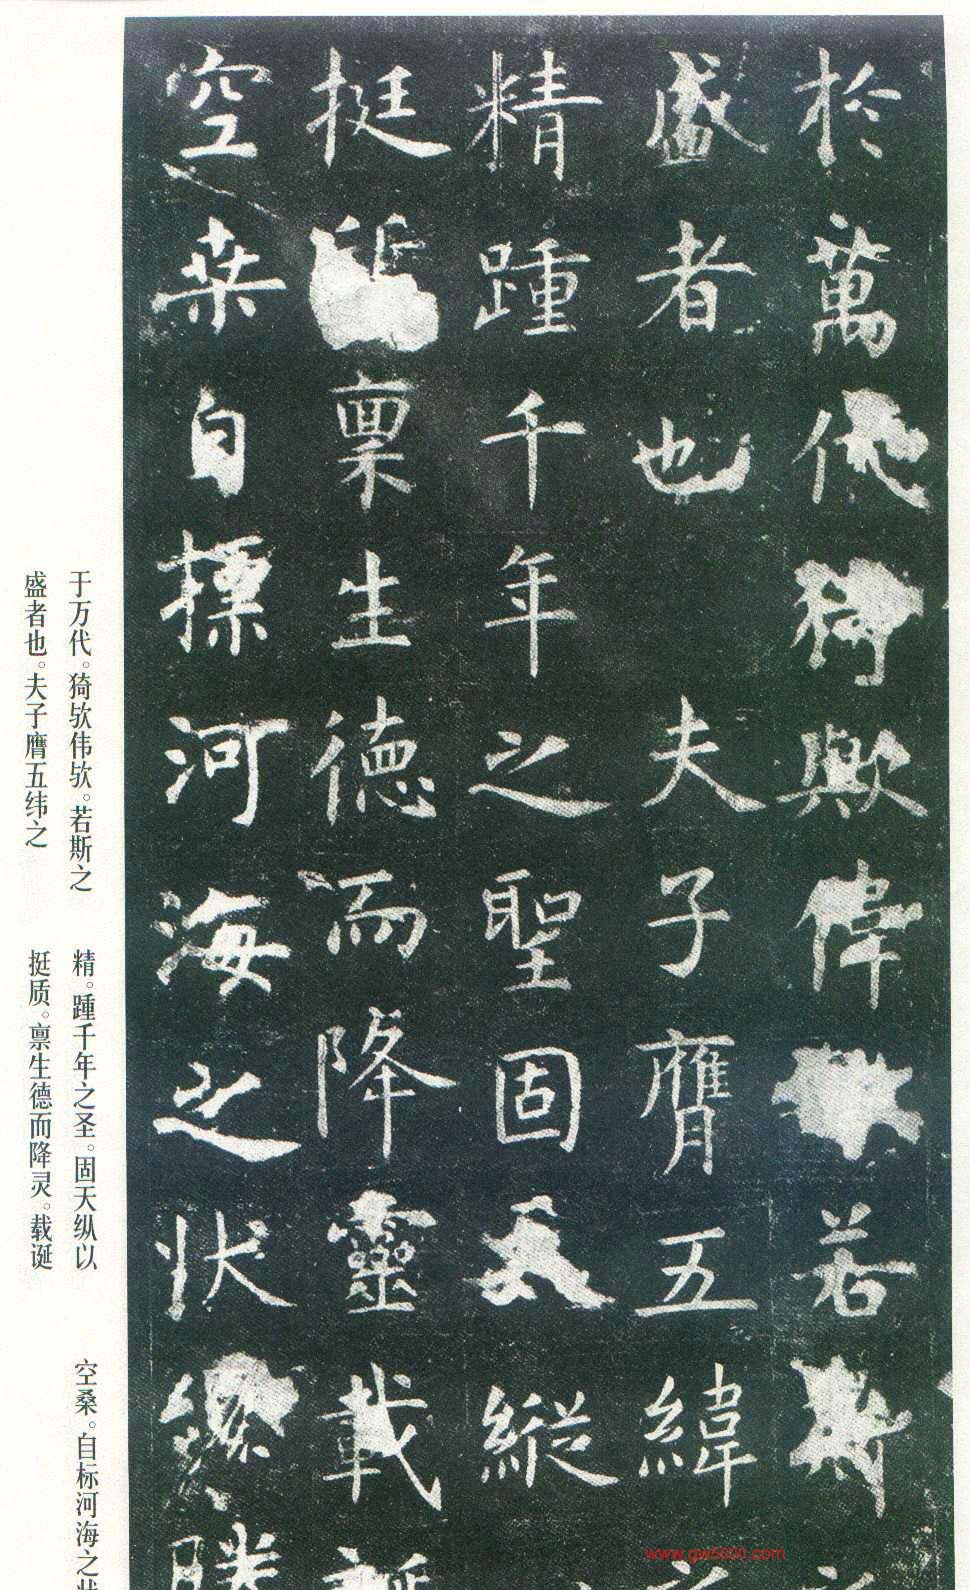 於萬代猗歟偉若斯
盛者也夫子膺五緯之
精踵千年之聖固天縱
挺質稟生德而降靈載誕
空桒自摽河海之狀纔勝
于万代。猗欤伟欤。若斯之
盛者也。夫子膺五纬之
精。踵千年之圣。固天纵以
挺质。禀生德而降灵。载诞
空桑。自标河海之状
www.gw5000.com